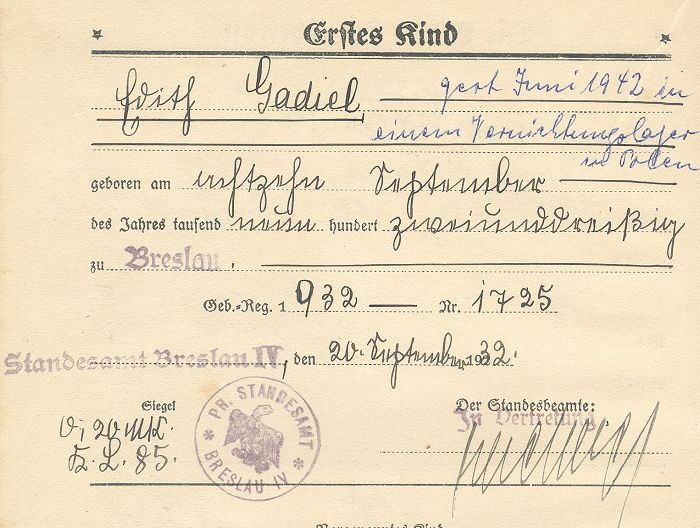 Erstes Kind
Edith Gadiel gest. Juni 1942 in
einem Vernichtungslager
in Polen
geboren am achtzehn September
des Jahres tausend neun hundert zweiunddreißig
zu Breslau.
Geb.-Reg. 1932 Nr. 1725
Standesamt Breslau IV, den 20. September 1932.
Siegel
Der Standesbeamte:
In Vertretung
PR. STANDESAMT
* BRESLAU IV *
0,20 MK.
85.